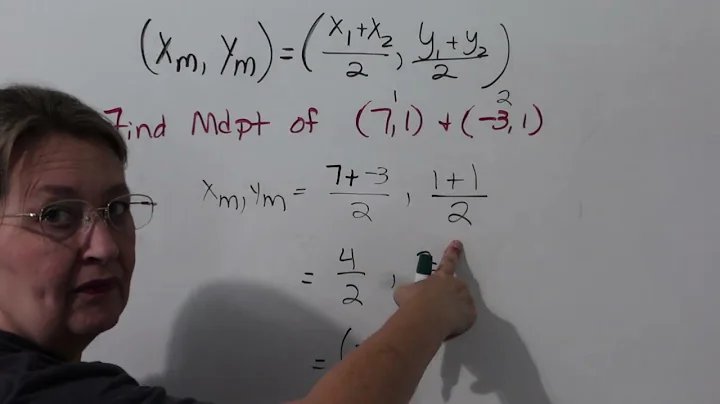 (Xm, Ym) = (X1+X2/2, y1+y2/2)
1 2
Find Mdpt of (7,1) + (-3,1)
Xm,Ym = 7+-3/2, 1+1/2
= 4/2,
= (